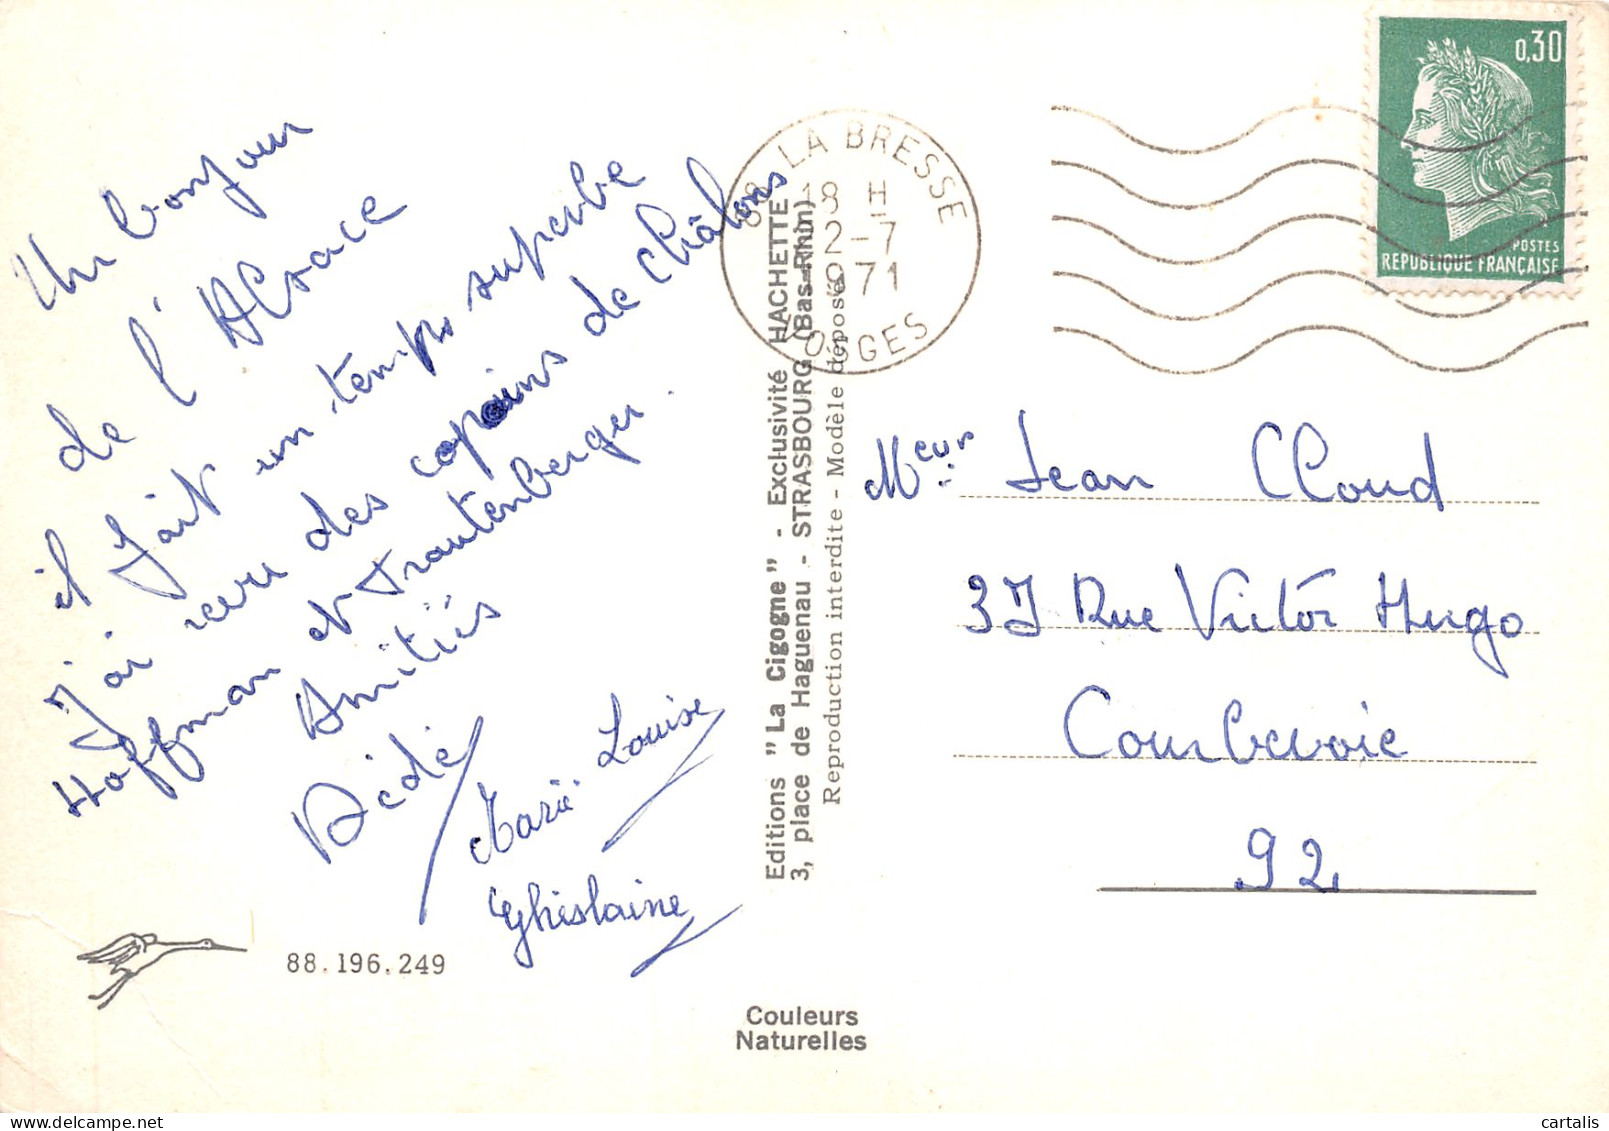 Un bonjour
de l'Alsace
il fait un temps superbe
j'ai revu des copains de Châlons
Hoffman et Trautenberger.
Amitiés
Dédé
Marie Louise
Ghislaine
88.196.249
Editions "La Cigogne" - Exclusivité HACHETTE
3, place de Haguenau - STRASBOURG (Bas-Rhin)
Reproduction interdite - Modèle déposé
Couleurs
Naturelles
88 LA BRESSE
18 H
2-7
1971
VOSGES
0,30
POSTES
REPUBLIQUE FRANÇAISE
Meur Jean Cloud
37 Rue Victor Hugo
Courbevoie
92
delcampe.net
cartalis